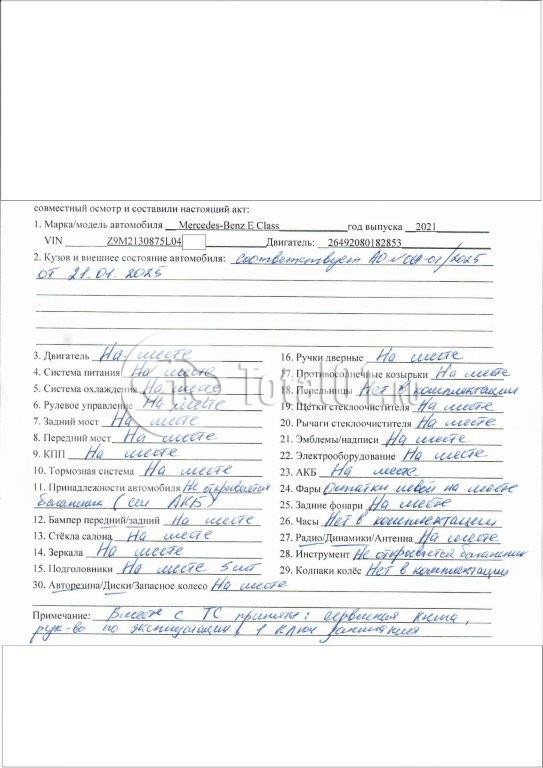 совместный осмотр и составили настоящий акт:
1. Марка/модель автомобиля Mercedes-Benz E Class год выпуска 2021
VIN Z9M2130875L04 Двигатель: 26492080182853
2. Кузов и внешнее состояние автомобиля: соответствует АО №
от 21.01.2025
3. Двигатель На месте
4. Система питания На месте
5. Система охлаждения На месте
6. Рулевое управление На месте
7. Задний мост На месте
8. Передний мост На месте
9. КПП На месте
10. Тормозная система На месте
11. Принадлежности автомобиля Не открывается
багажник (сел АКБ)
12. Бампер передний/задний На месте
13. Стёкла салона На месте
14. Зеркала На месте
15. Подголовники На месте 5 шт
16. Ручки дверные На месте
17. Противосолнечные козырьки На месте
18. Пепельницы Нет в комплектации
19. Щётки стеклоочистителя На месте
20. Рычаги стеклоочистителя На месте
21. Эмблемы/надписи На месте
22. Электрооборудование На месте
23. АКБ На месте
24. Фары Остатки левой на месте
25. Задние фонари На месте
26. Часы Нет в комплектации
27. Радио/Динамики/Антенна На месте
28. Инструмент Не открывается багажник
29. Колпаки колёс Нет в комплектации
30. Авторезина/Диски/Запасное колесо На месте
Примечание: Вместе с ТС приняты: сервисная книга,
рук-во по эксплуатации, 1 ключ зажигания
Total01.ru